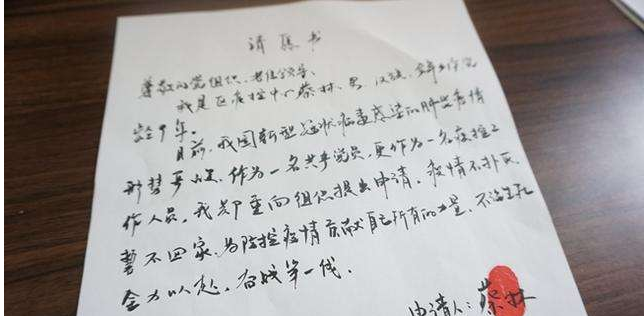 请愿书
尊敬的党组织、各位领导、
我是区疾控中心蔡林、男、汉族、
龄9年。
目前,我国新型冠状病毒感染的肺炎疫情
形势严峻,作为一名共产党员,更作为一名疾控工
作人员,我郑重向组织提出申请,疫情不扑灭
誓不回家,为防控疫情贡献自己所有的力量,不论生死
全力以赴,奋战第一线.
申请人:蔡林